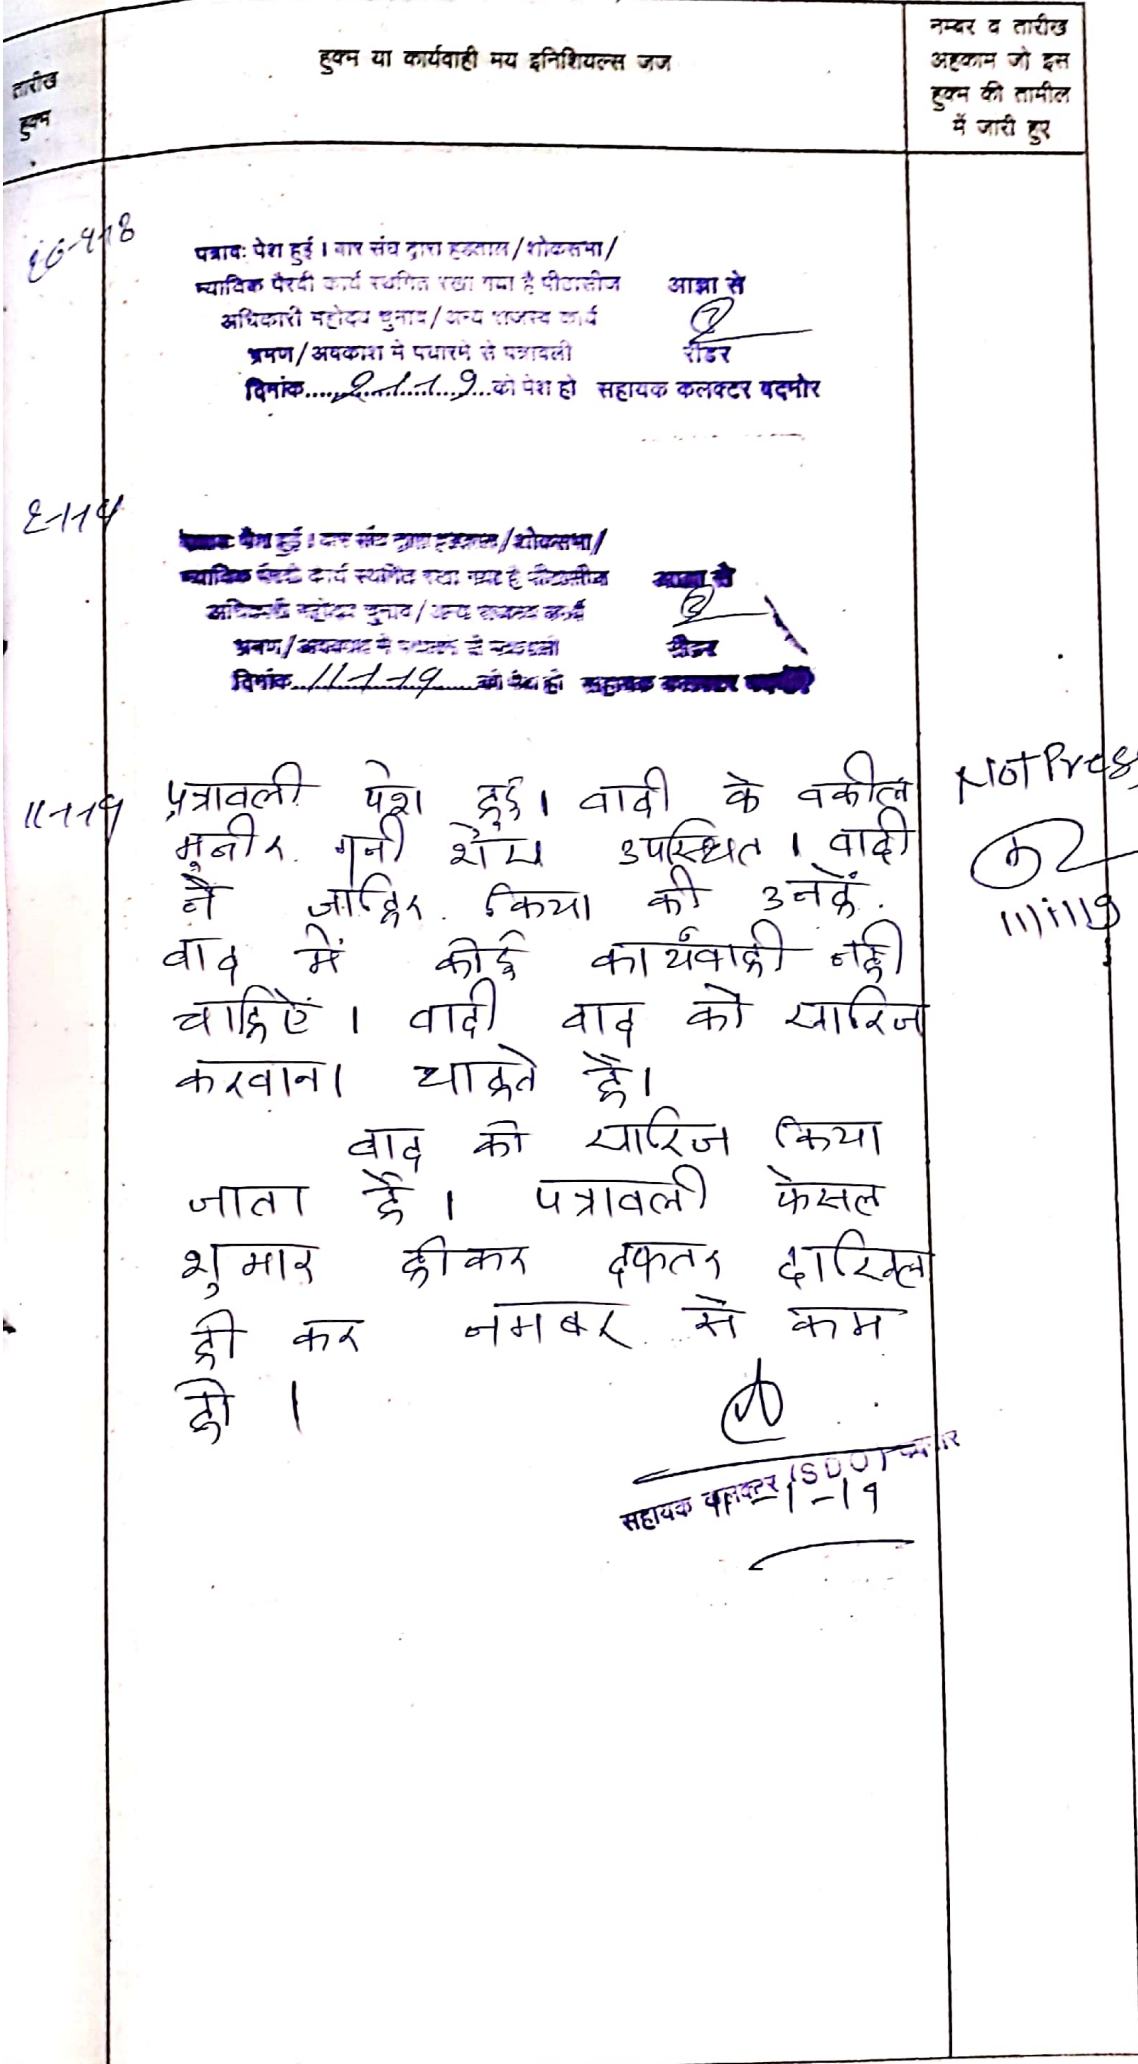 तारीख
हुक्म
हुक्म या कार्यवाही मय इनिशियल्स जज
नम्बर व तारीख
अहकाम जो इस
हुक्म की तामील
में जारी हुए
पत्राव: पेश हुई । बार संघ द्वारा हडताल/शोकसभा/
न्यायिक पैरवी कार्य स्थगित रखा गया है पीठासीन आज्ञा से
अधिकारी महोदय चुनाव/अन्य राजस्व कार्य
भ्रमण/अवकाश मे पधारने से पत्रावली रीडर
दिनांक 2-1-19 को पेश हो सहायक कलक्टर
2-1-19
पेश हुई । बार संघ द्वारा हडताल/शोकसभा/
न्यायिक पैरवी कार्य स्थगित रखा गया है पीठासीन आज्ञा से
अधिकारी महोदय चुनाव/अन्य राजस्व कार्य
भ्रमण/अवकाश मे पधारने से पत्रावली रीडर
दिनांक 11-1-19 को पेश हो सहायक कलक्टर
11-1-19
पत्रावली पेश हुई । वादी के वकील
मूनीर गनी उपस्थित । वादी
ने जाहिर किया की उनहें
वाद में कोई कार्यवाही नही
चाहिऐं । वादी वाद को खारिज
करवाना चाहते है।
वाद को खारिज किया
जाता है । पत्रावली फेसल
शुमार होकर दफतर दाखिल
हो कर नमबर से कम
हो ।
Not Press
11/1/19
सहायक कलक्टर (SDO)
11-1-19